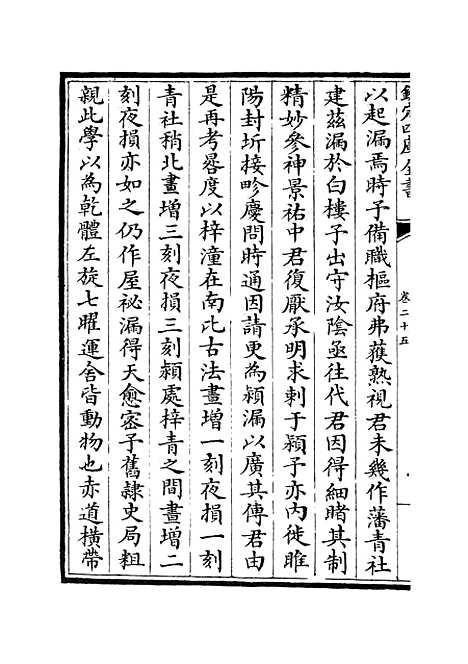 欽定四庫全書
卷二十五
以起漏焉時予備職樞府弗獲熟視君未幾作藩青社
建茲漏於白樓子出守汝陰亟往代君因得細睹其制
精妙參神景祐中君復厭承明求刺于潁子亦内徙睢
陽封圻接畛慶問時通因請更為潁漏以廣其傳君由
是再考晷度以梓潼在南比古法晝增一刻夜損一刻
青社稍北晝增三刻夜損三刻潁處梓青之間晝增二
刻夜損亦如之仍作屋祕漏得天愈密子舊隷史局粗
親此學以為乾體左旋七曜運舍皆動物也赤道横帶